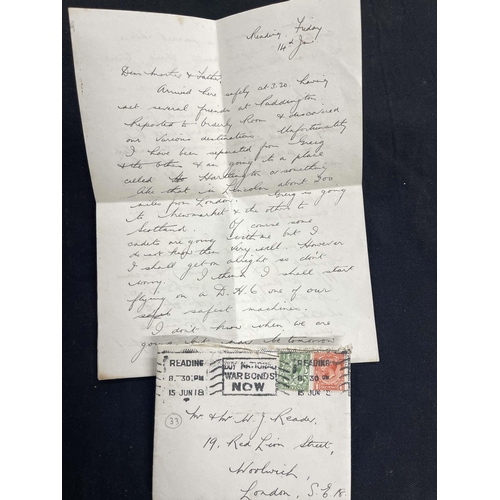 Reading, Friday
14th Jun
Dear Mother & Father,
Arrived here safely at 3.20. having
met several friends at Paddington.
Reported to Orderly Room & discovered
our various destinations. Unfortunately
I have been separated from Greig
& the others & am going to a place
called Harthington or something
like that in Lincoln about 200
miles from London. Greig is going
to Newmarket & the other to
Scotland. Of course some
cadets are going with me but I
do not know them very well. However
I shall get on alright so don't
worry. I think I shall start
flying on a D.H.6 one of our
safest machines.
I don't know when we are
READING
8. 30. PM
15 JUN 18
BUY NATIONAL
WAR BONDS
NOW
READING
8. 30. PM
15 JUN
33
Mr & Mrs W. J. Reader,
19, Red Lion Street,
Woolwich,
London, S.E. 18.